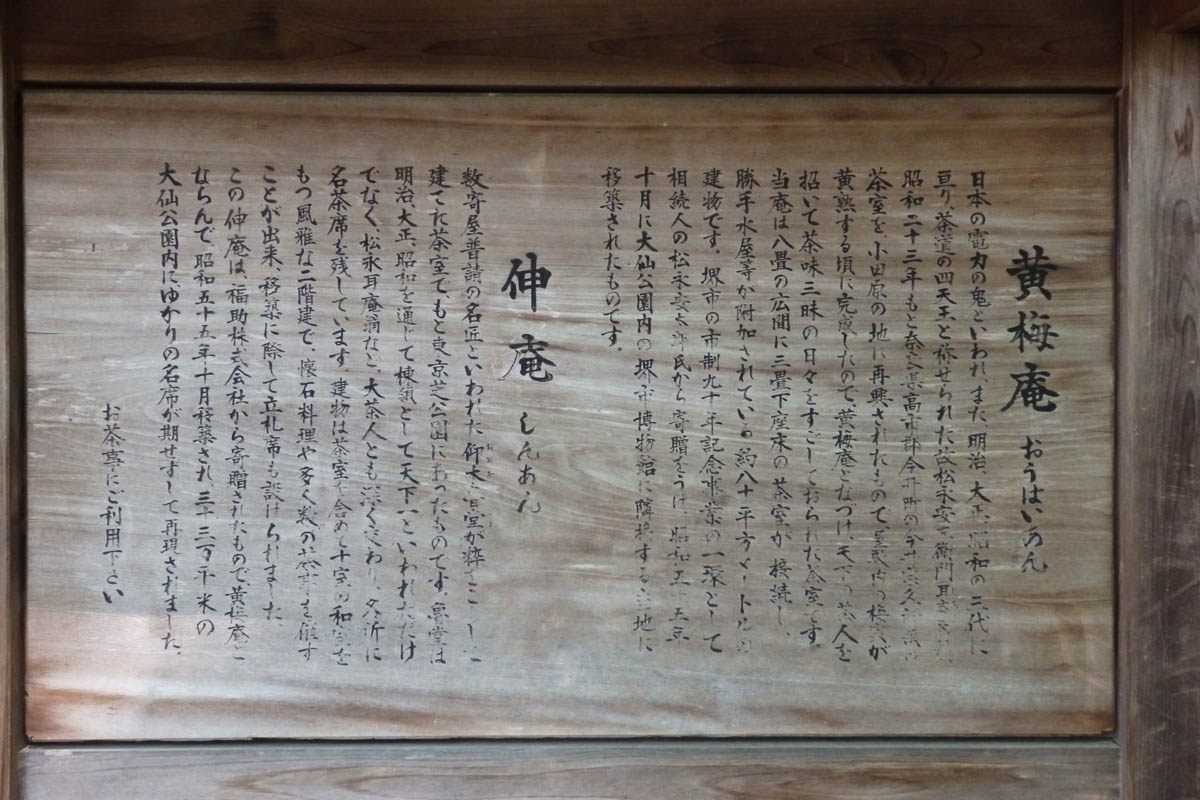 黄梅庵 おうばいあん
日本の電力の鬼といわれ、また、明治、大正、昭和の三代に
亘り、茶道の四天王と称せられた故松永安左衛門耳
昭和二十三年もと奈良県高市郡今井町の
茶室を、小田原の地に再興されたもので 梅 が
黄熟する頃に完成したので、黄梅庵となづけ、天下の茶人を
招いて茶味三昧の日々をすごしておられた茶室です。
当庵は八畳の広間に三畳下座床の茶室が接続し、
勝手水屋等が附加されている約八十平方メートルの
建物です。堺市の市制九十年記念事業の一環として
相続人の松永安太郎氏から寄贈をうけ、昭和五十五年
十月に大仙公園内の堺市博物館に隣接する 地に
移築されたものです。
伸庵 しんあん
数寄屋普請の名匠といわれた仰木 堂が粋をこ し
建てた茶室で、もと東京芝公園にあったものです。魯堂は
明治、大正、昭和を通じて棟梁として天下一といわれただけ
でなく、松永耳庵翁など、大茶人とも深く交わり、各所に
名茶席を残しています。建物は茶室を含め 十室の和室を
もつ風雅な二階建で、懐石料理や多人数の茶事を催す
ことが出来、移築に際して立礼席も設けられました
この伸庵は、福助株式会社から寄贈されたもので黄梅庵と
ならんで、昭和五十五年十月移築され、三十三万平米の
大仙公園内にゆかりの名席が期せずして再現されました。
お茶事にご利用下さい